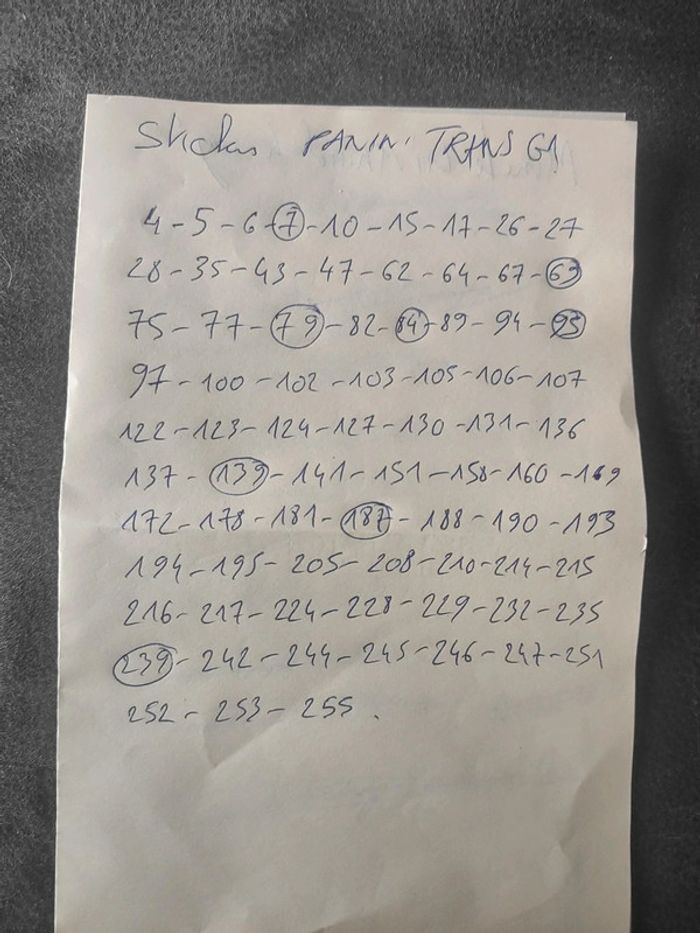 Stickers PANINI TRANS G1
4 - 5 - 6 - 7 - 10 - 15 - 17 - 26 - 27
28 - 35 - 43 - 47 - 62 - 64 - 67 - 69
75 - 77 - 79 - 82 - 84 - 89 - 94 - 95
97 - 100 - 102 - 103 - 105 - 106 - 107
122 - 123 - 124 - 127 - 130 - 131 - 136
137 - 139 - 141 - 151 - 158 - 160 - 169
172 - 178 - 181 - 187 - 188 - 190 - 193
194 - 195 - 205 - 208 - 210 - 214 - 215
216 - 217 - 224 - 228 - 229 - 232 - 235
239 - 242 - 244 - 245 - 246 - 247 - 251
252 - 253 - 255 .